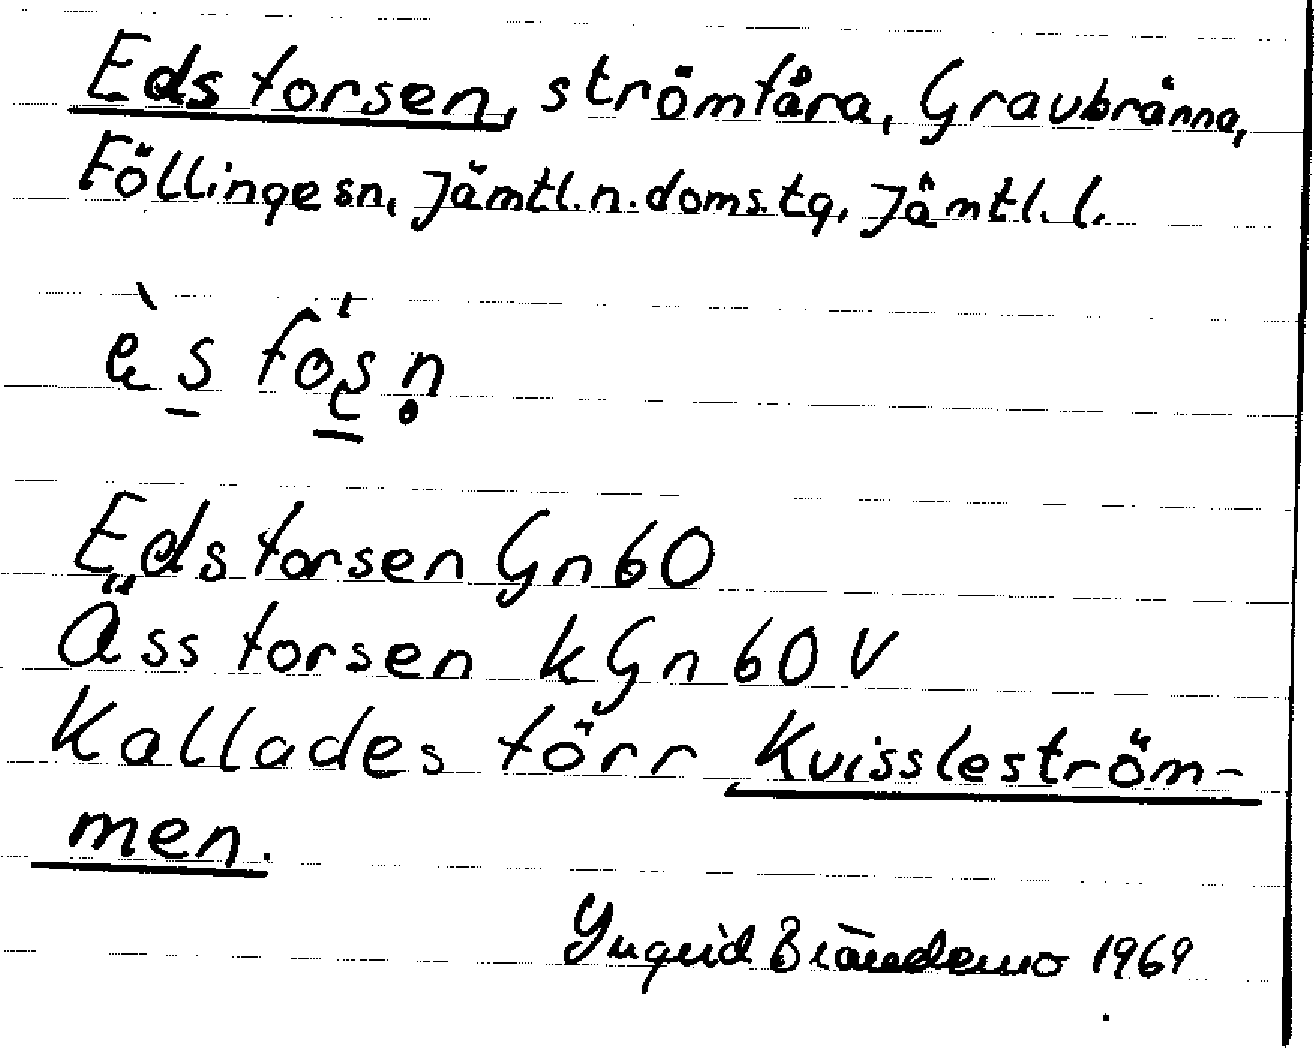 Edsforsen, strömfåra, Gravbränna,
Föllinge sn, Jämtl. n. doms. tg, Jämtl. l.
Edsforsen Gn 60
Äss forsen k Gn 60 V
Kallades förr Kvisslesström-
men.
Yngvid Brändemo 1969